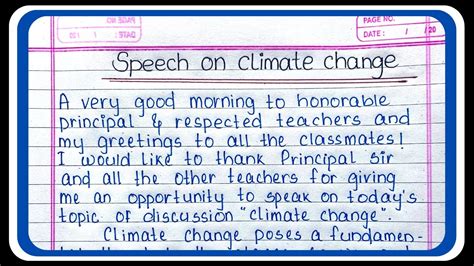 PAGE NO.
DATE: / /20
Speech on climate change
A very good morning to honorable
principal & respected teachers and
my greetings to all the classmates!
I would like to thank Principal Sir
and all the other teachers for giving
me an opportunity to speak on today's
topic of discussion "climate change".
Climate change poses a fundamen-